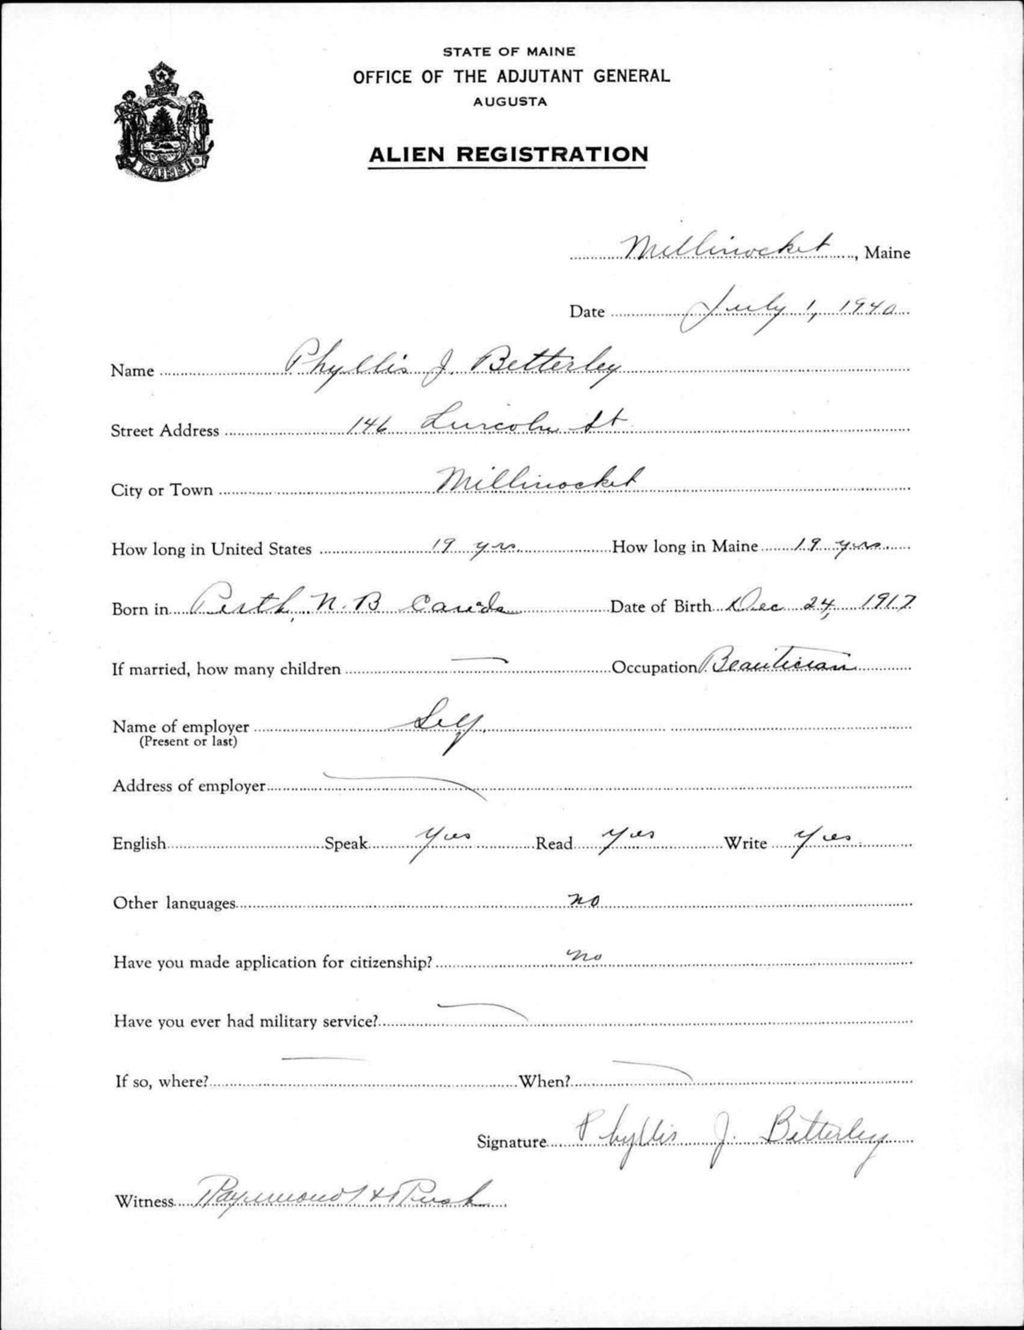 STATE OF MAINE
OFFICE OF THE ADJUTANT GENERAL
AUGUSTA
ALIEN REGISTRATION
MAINE
Millinocket, Maine
Date July 1, 1940
Name Phyllis J. Betterley
Street Address 146 Lincoln St
City or Town Millinocket
How long in United States 19 yrs How long in Maine 19 yrs
Born in Perth, N.B Canada Date of Birth Dec 24, 1917
If married, how many children — Occupation Beautician
Name of employer Self
(Present or last)
Address of employer
English Speak Yes Read Yes Write Yes
Other languages no
Have you made application for citizenship? no
Have you ever had military service?
If so, where? — When?
Signature Phyllis J. Betterley
Witness Raymond H